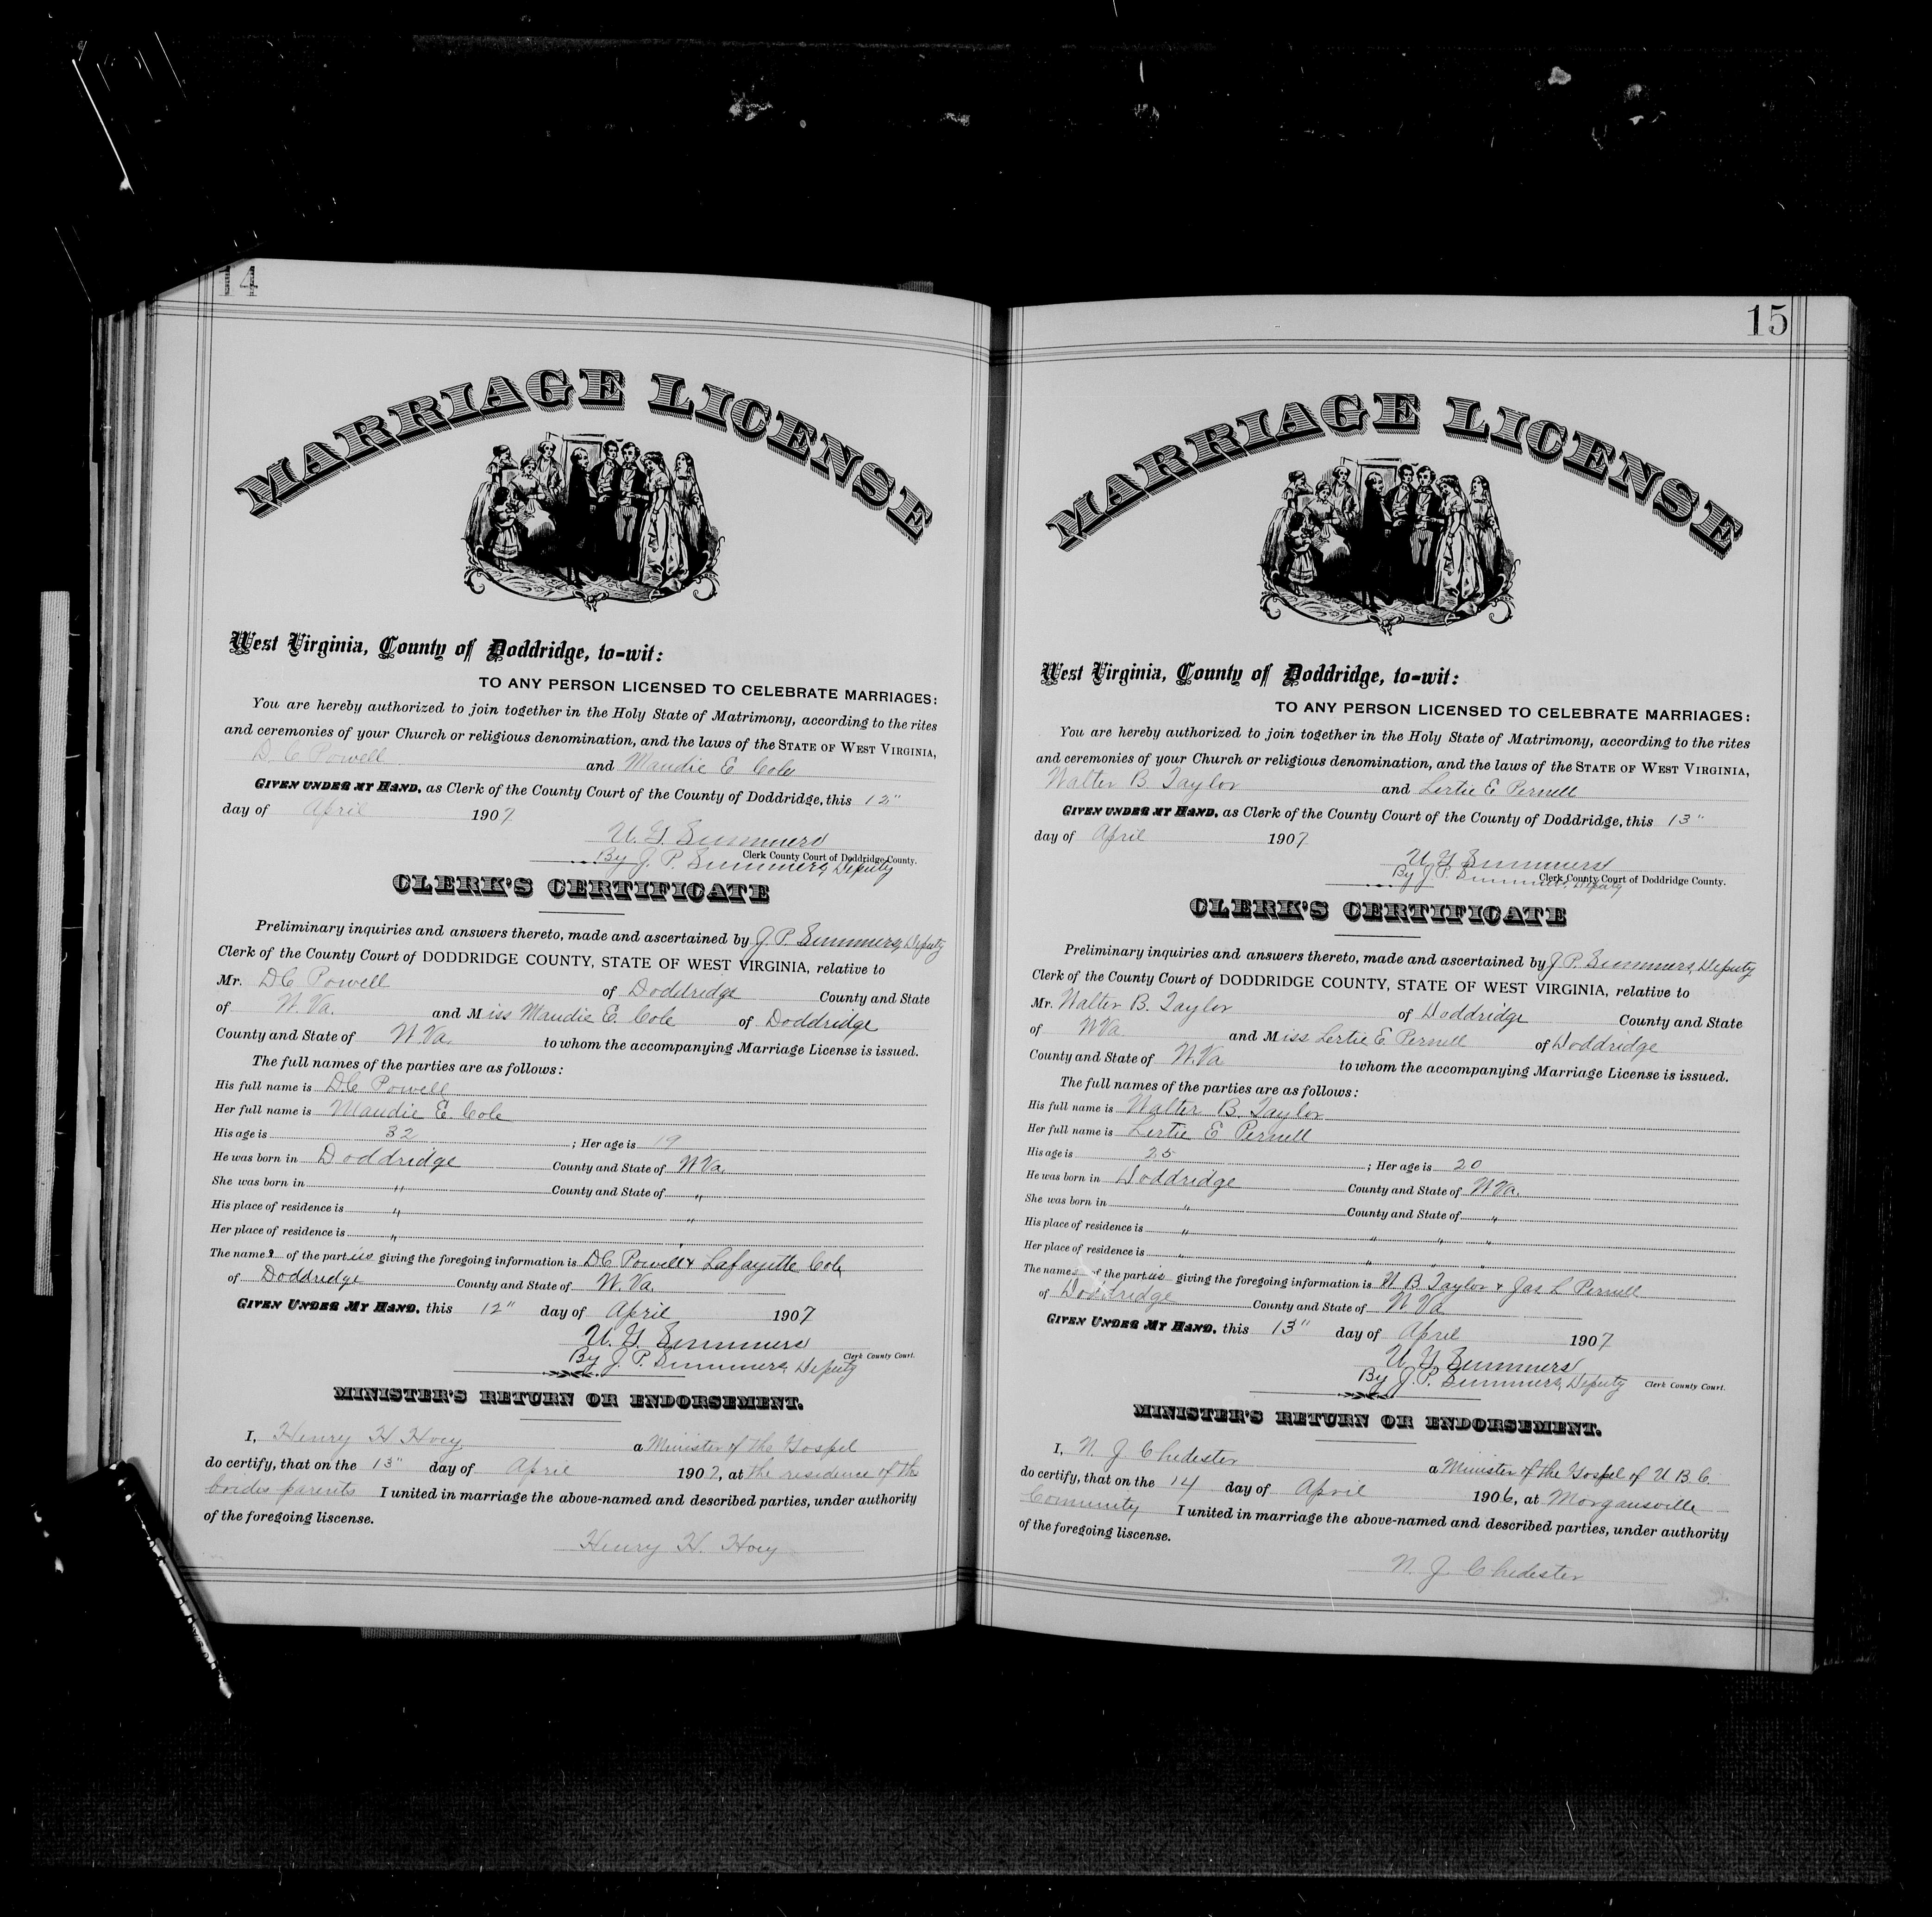 14
MARRIAGE LICENSE
West Virginia, County of Doddridge, to-wit:
TO ANY PERSON LICENSED TO CELEBRATE MARRIAGES:
You are hereby authorized to join together in the Holy State of Matrimony, according to the rites
and ceremonies of your Church or religious denomination, and the laws of the STATE OF WEST VIRGINIA,
D. C Powell and Maudie E. Cole
GIVEN UNDER MY HAND, as Clerk of the County Court of the County of Doddridge, this 12"
day of April 1907
U. G. Summers
Clerk County Court of Doddridge County.
By J. P. Summers, Deputy
CLERK'S CERTIFICATE
Preliminary inquiries and answers thereto, made and ascertained by J. P. Summers, Deputy
Clerk of the County Court of DODDRIDGE COUNTY, STATE OF WEST VIRGINIA, relative to
Mr. D C Powell of Doddridge County and State
of W. Va. and Miss Maudie E. Cole of Doddridge
County and State of W Va. to whom the accompanying Marriage License is issued.
The full names of the parties are as follows:
His full name is D. C Powell
Her full name is Maudie E. Cole
His age is 32 ; Her age is 19
He was born in Doddridge County and State of W Va.
She was born in " County and State of "
His place of residence is " "
Her place of residence is " "
The names of the parties giving the foregoing information is D C Powell & Lafayette Cole
of Doddridge County and State of W. Va.
GIVEN UNDER MY HAND, this 12" day of April 1907
U. G. Summers
Clerk County Court.
By J. P. Summers, Deputy
MINISTER'S RETURN OR ENDORSEMENT.
I, Henry H Hoey a Minister of the Gospel
do certify, that on the 13" day of April 1907, at the residence of the
brides parents I united in marriage the above-named and described parties, under authority
of the foregoing liscense.
Henry H. Hoey
15
MARRIAGE LICENSE
West Virginia, County of Doddridge, to-wit:
TO ANY PERSON LICENSED TO CELEBRATE MARRIAGES:
You are hereby authorized to join together in the Holy State of Matrimony, according to the rites
and ceremonies of your Church or religious denomination, and the laws of the STATE OF WEST VIRGINIA,
Walter B. Taylor and Lertie E Pernell
GIVEN UNDER MY HAND, as Clerk of the County Court of the County of Doddridge, this 13"
day of April 1907
U G Summers
Clerk County Court of Doddridge County.
By J P. Summers, Deputy
CLERK'S CERTIFICATE
Preliminary inquiries and answers thereto, made and ascertained by J P. Summers, Deputy
Clerk of the County Court of DODDRIDGE COUNTY, STATE OF WEST VIRGINIA, relative to
Mr. Walter B. Taylor of Doddridge County and State
of W Va and Miss Lertie E Pernell of Doddridge
County and State of W. Va to whom the accompanying Marriage License is issued.
The full names of the parties are as follows:
His full name is Walter B. Taylor
Her full name is Lertie E Pernell
His age is 25 ; Her age is 20
He was born in Doddridge County and State of W Va.
She was born in " County and State of "
His place of residence is " " " "
Her place of residence is " " " "
The names of the parties giving the foregoing information is W B Taylor & Jas L Pernell
of Doddridge County and State of W Va
GIVEN UNDER MY HAND, this 13" day of April 1907
U G. Summers
By J P. Summers, Deputy Clerk County Court.
MINISTER'S RETURN OR ENDORSEMENT.
I, N. J Chedester a Minister of the Gospel of U. B. C.
do certify, that on the 14 day of April 1906, at Morgansville
Community I united in marriage the above-named and described parties, under authority
of the foregoing liscense.
N. J Chedester